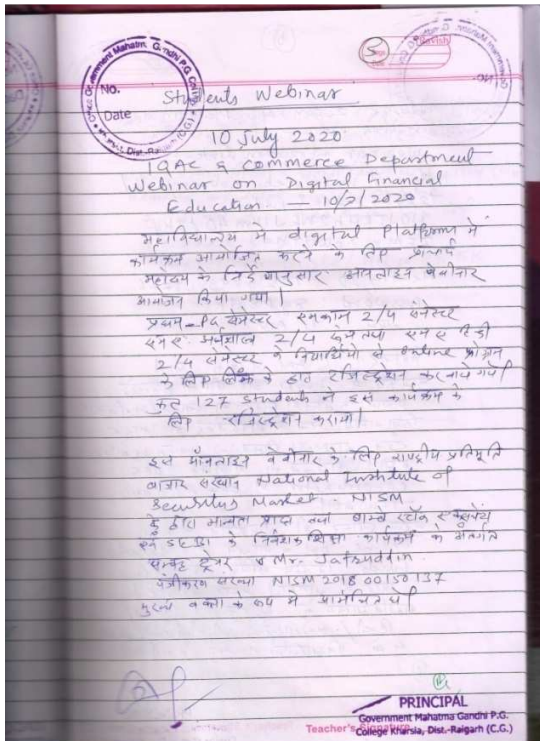 Lavish
5
No.
Date
Students Webinar
10 July 2020
IQAC & Commerce Department
Webinar on Digital Financial
Education — 10/7/2020
महाविद्यालय में digital Platform में
कार्यक्रम आयोजित करने के लिए प्राचार्य
महोदय के निर्देशानुसार आनलाइन वेबीनार
आयोजन किया गया।
एमकाम 2/4 सेमेस्टर
2/4
2/4 सेमेस्टर के विद्यार्थियों से online
के लिए लिंक के द्वारा रजिस्ट्रेशन करवाये गये।
कुल 127 students ने इस कार्यक्रम के
लिए रजिस्ट्रेशन कराया।
इस ऑनलाइन वेबीनार के लिए राष्ट्रीय प्रतिभूति
बाजार संस्थान National Institute of
Securities Market - NISM
के द्वारा मान्यता प्राप्त तथा बाम्बे स्टॉक एक्सचेंज
के निवेशक शिक्षा कार्यक्रम के अंतर्गत
ट्रेनर Mr. Jafruddin
पंजीकरण संख्या NISM 201800150137
मुख्य वक्ता के रूप में आमंत्रित थे।
PRINCIPAL
Government Mahatma Gandhi P.G.
Teacher's Signature College Kharsia, Dist.-Raigarh (C.G.)